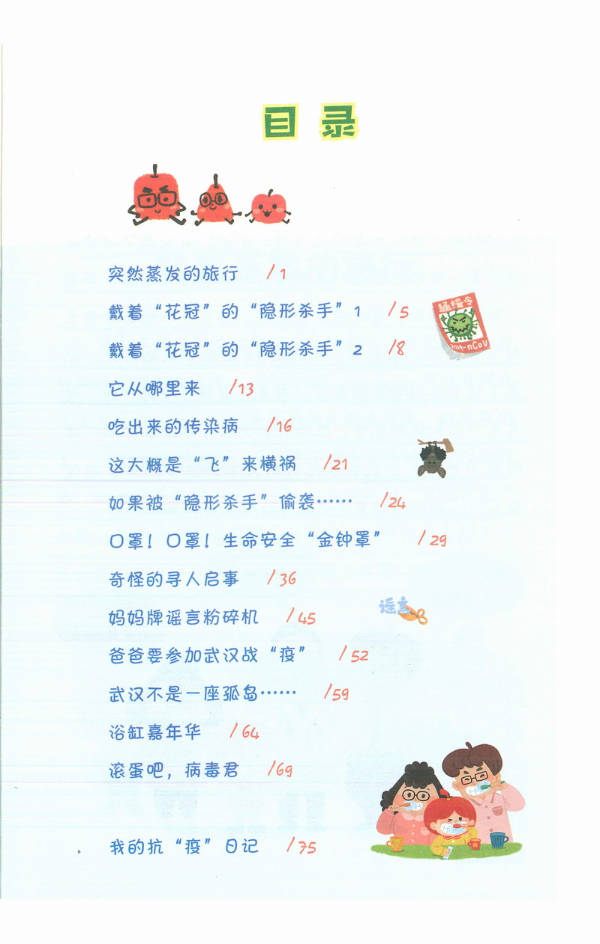 目录
突然蒸发的旅行 /1
戴着“花冠”的“隐形杀手”1 /5
戴着“花冠”的“隐形杀手”2 /8
通缉令
它从哪里来 /13
吃出来的传染病 /16
这大概是“飞”来横祸 /21
如果被“隐形杀手”偷袭…… /24
口罩！口罩！生命安全“金钟罩” /29
奇怪的寻人启事 /36
妈妈牌谣言粉碎机 /45
谣言
爸爸要参加武汉战“疫” /52
武汉不是一座孤岛…… /59
浴缸嘉年华 /64
滚蛋吧，病毒君 /69
我的抗“疫”日记 /75